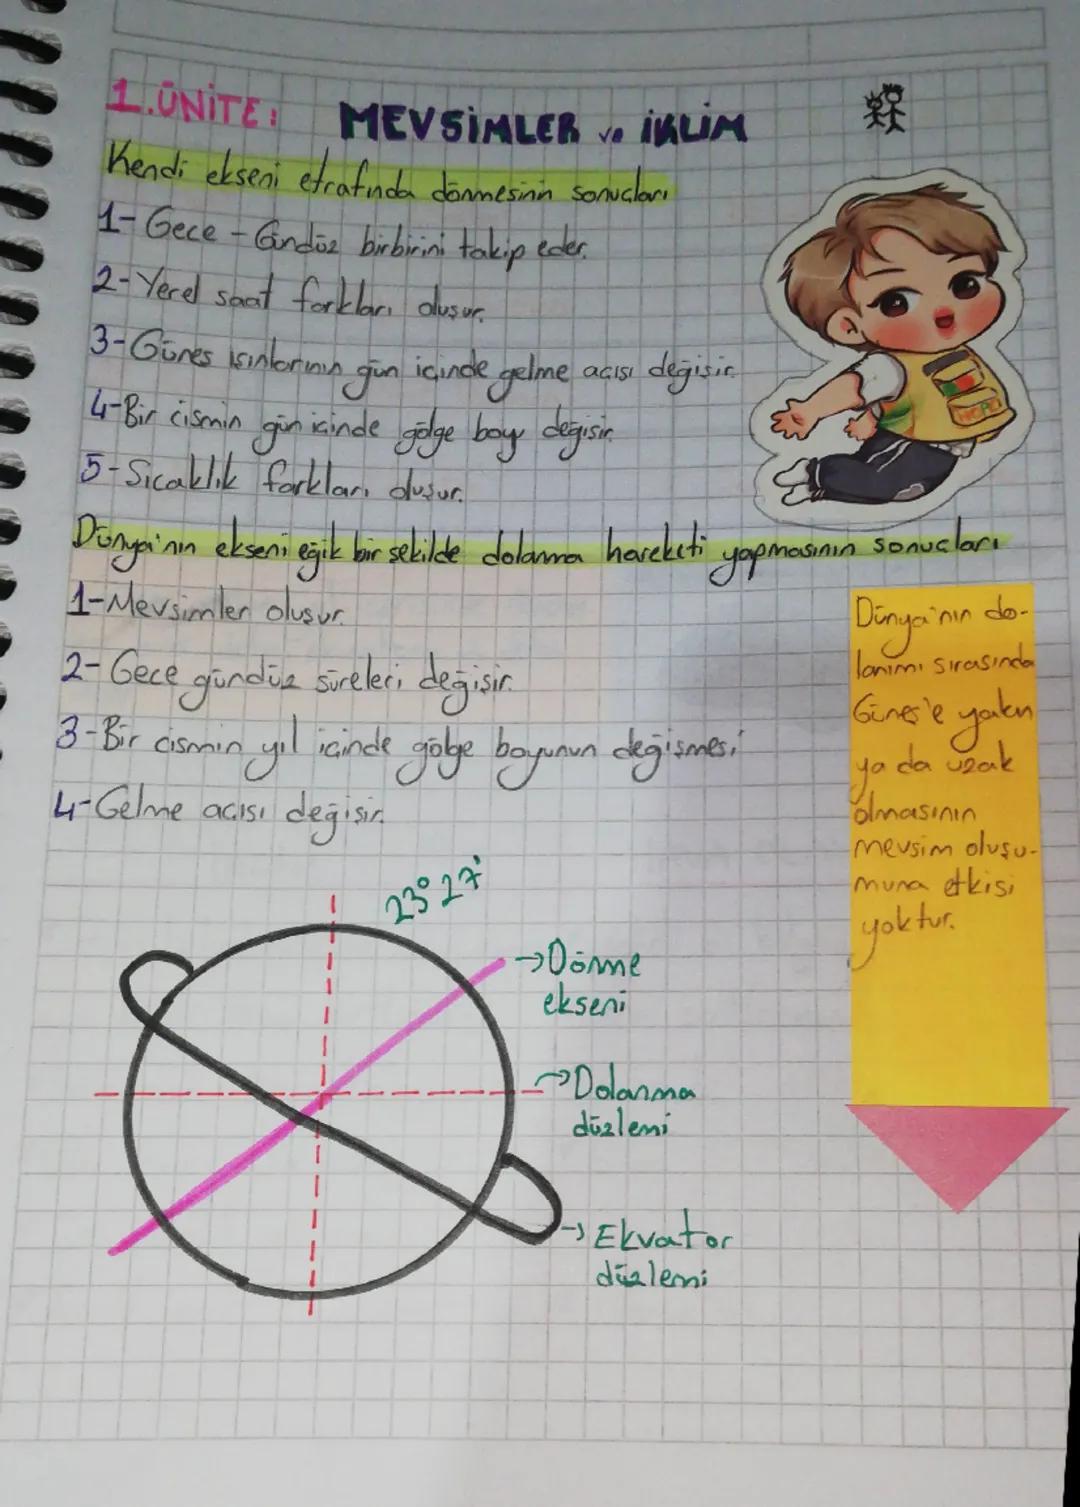 1.ÜNİTE: MEVSİMLER ve İKLİM
Kendi ekseni etrafında dönmesinin sonuçları
1- Gece - Gündüz birbirini takip eder.
2- Yerel saat farkları oluşur.
3- Güneş ışınlarının gün içinde gelme açısı değişir.
4- Bir cismin gün içinde gölge boyu değişir.
5- Sıcaklık farkları oluşur.
Dünya'nın ekseni eğik bir şekilde dolanma hareketi yapmasının sonuçları
1- Mevsimler oluşur.
2- Gece gündüz süreleri değişir.
3- Bir cismin yıl içinde gölge boyunun değişmesi
4- Gelme açısı değişir.
Dünya'nın do-
lanımı sırasında
Güneş'e yakın
ya da uzak
olmasının
mevsim oluşu-
muna etkisi
yoktur.
23° 27'
→Dönme
ekseni
→Dolanma
düzlemi
→Ekvator
düzlemi